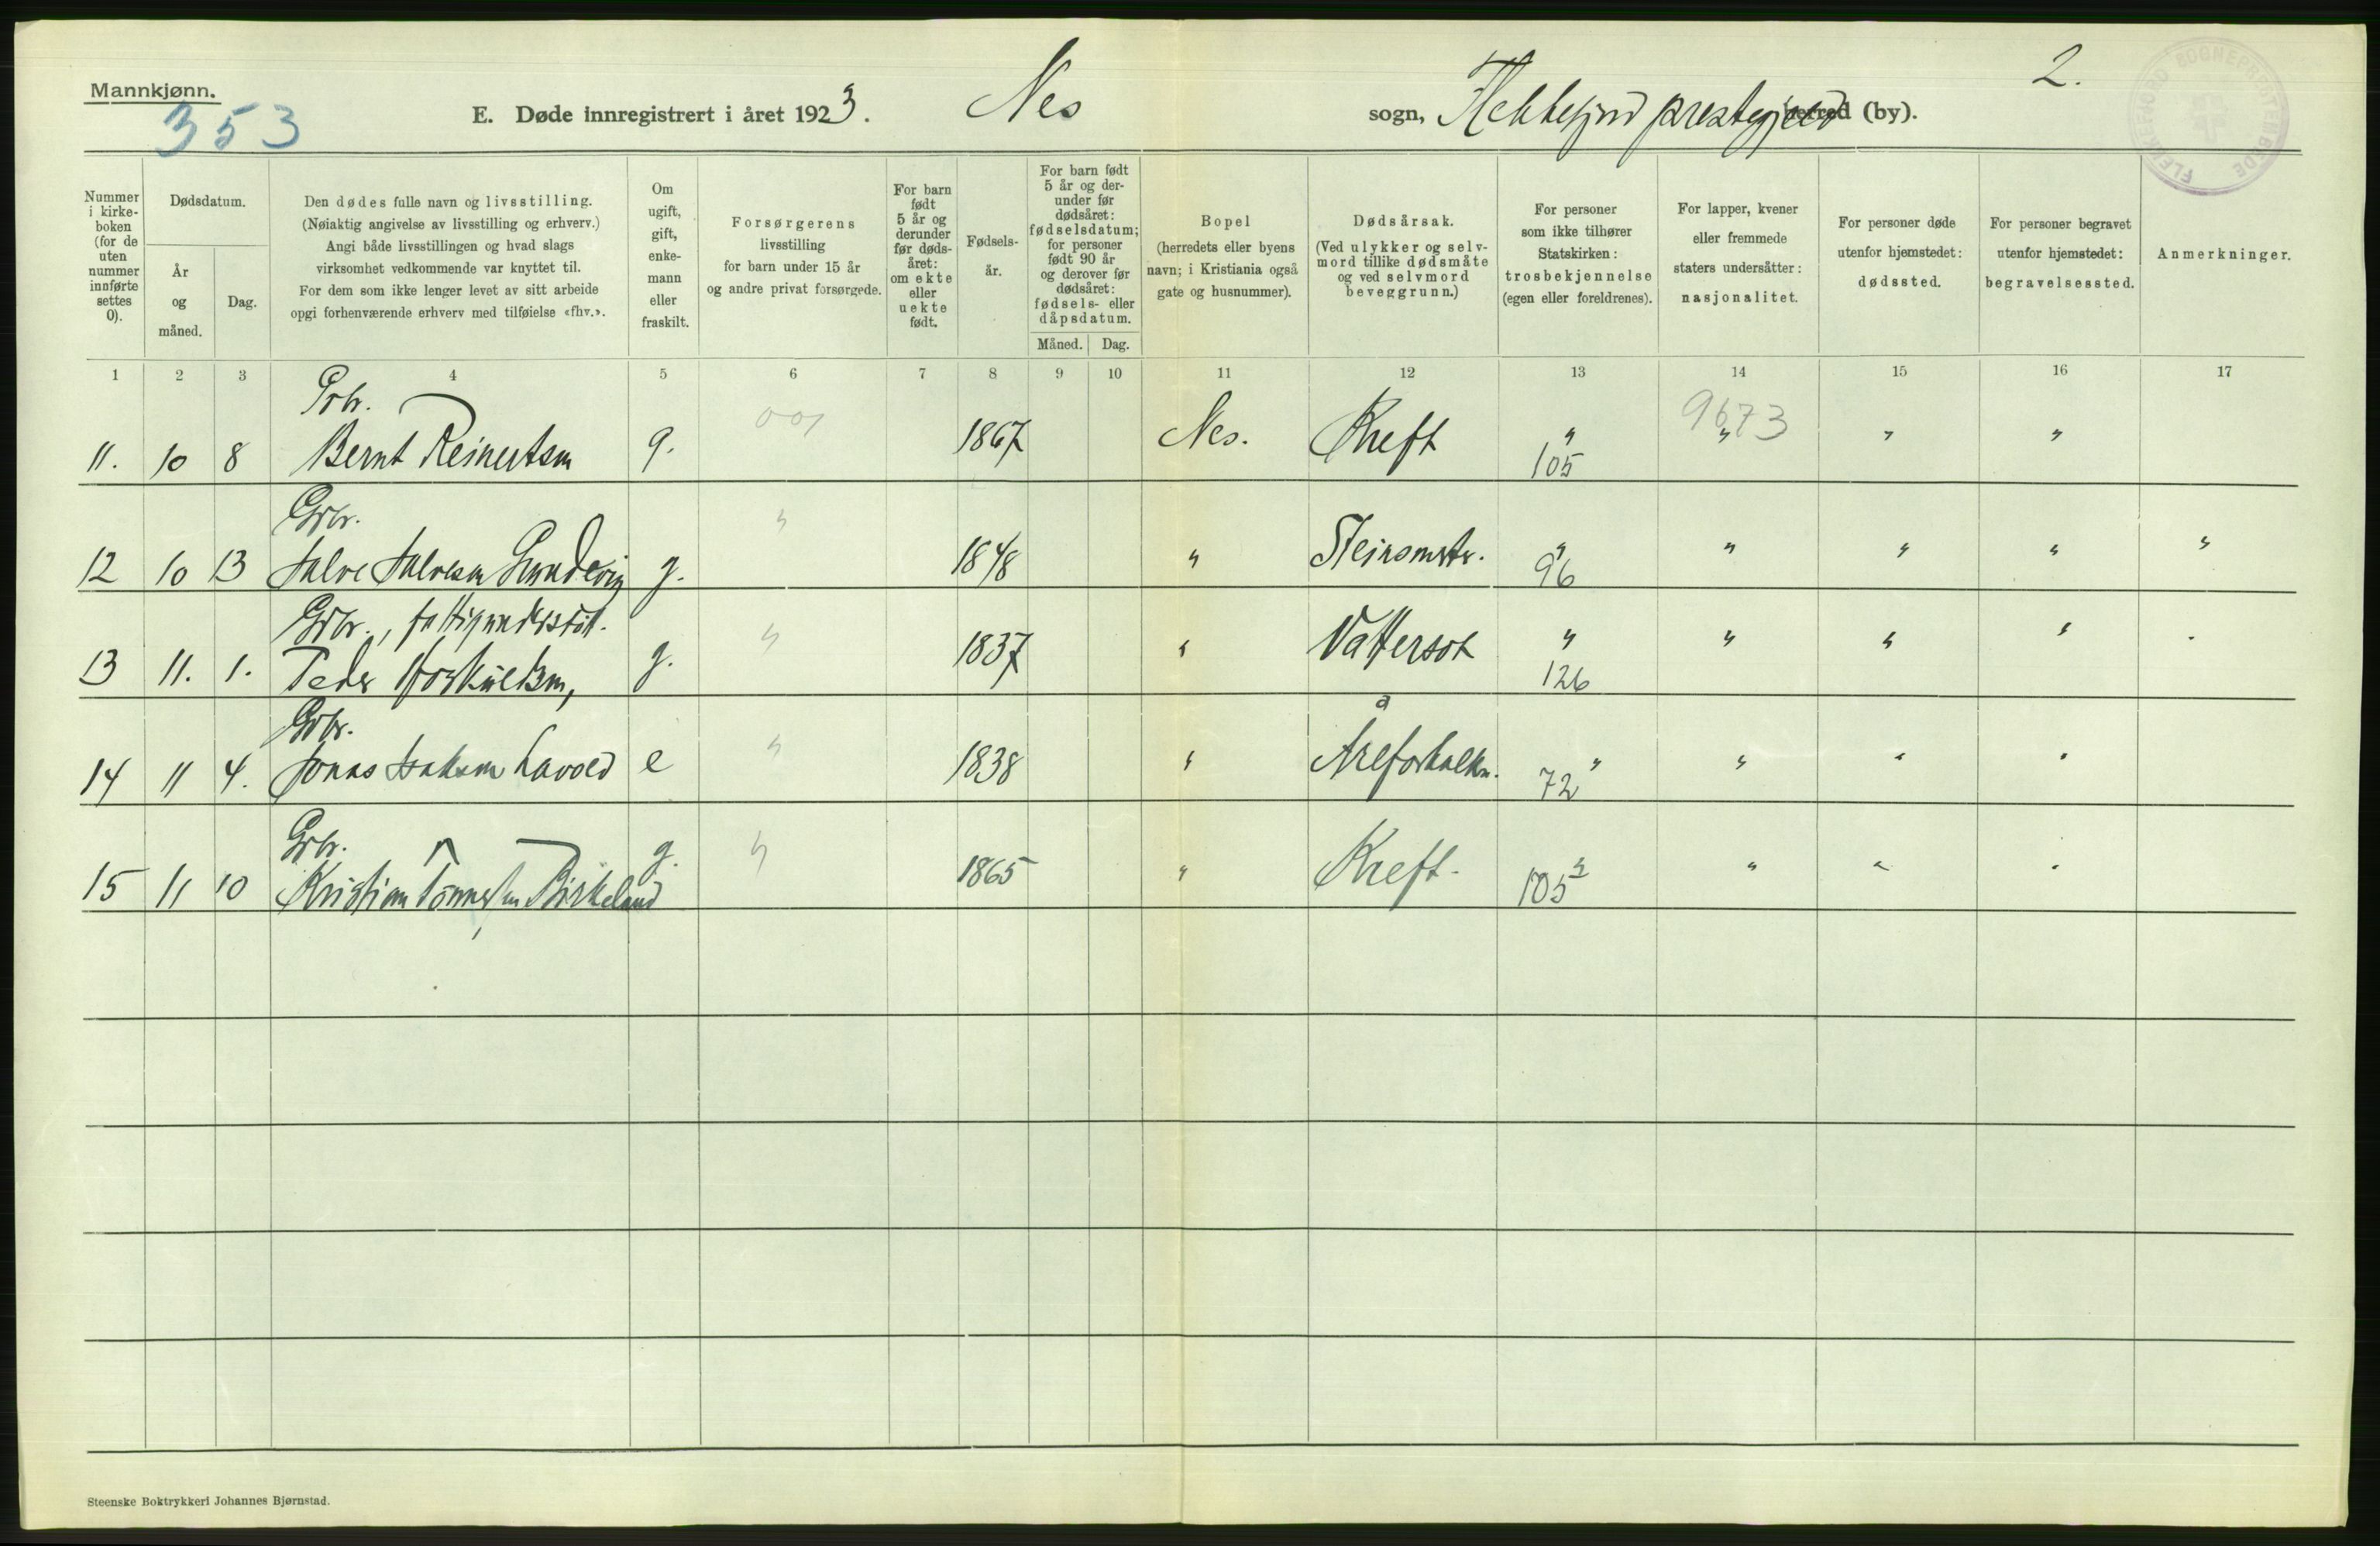 Mannkjønn.
353
E. Døde innregistrert i året 1923. Nes sogn, prestegjeld herred (by).
2.
FLEKKEFJORD SOGNEPRESTEMBEDE
Nummer i kirke- boken (for de uten nummer innførte settes 0).
Dødsdatum.
År og måned.
Dag.
Den dødes fulle navn og livsstilling.
(Nøiaktig angivelse av livsstilling og erhverv.)
Angi både livsstillingen og hvad slags
virksomhet vedkommende var knyttet til.
For dem som ikke lenger levet av sitt arbeide
opgi forhenværende erhverv med tilføielse «fhv.».
Om ugift, gift, enke- mann eller fraskilt.
Forsørgerens
livsstilling
for barn under 15 år
og andre privat forsørgede.
For barn født 5 år og derunder før døds- året: om ekte eller uekte født.
Fødsels- år.
For barn født 5 år og der- under før dødsåret: fødselsdatum; for personer født 90 år og derover før dødsåret: fødsels- eller dåpsdatum.
Måned. Dag.
Bopel
(herredets eller byens
navn; i Kristiania også
gate og husnummer).
Dødsårsak.
(Ved ulykker og selv-
mord tillike dødsmåte
og ved selvmord
beveggrunn.)
For personer
som ikke tilhører
Statskirken:
trosbekjennelse
(egen eller foreldrenes).
For lapper, kvener
eller fremmede
staters undersåtter:
nasjonalitet.
For personer døde
utenfor hjemstedet:
dødssted.
For personer begravet
utenfor hjemstedet:
begravelsessted.
Anmerkninger.
1 2 3 4 5 6 7 8 9 10 11 12 13 14 15 16 17
001 9673
11. 10 8 Bernt Reinertsen g. 1867 Nes. Kreft " " " "
105
Gbr. "
12 10 13 Salve Salvesen g. 1848 " " " " " "
96
Gbr., fattigunderstøt. "
13 11. 1. Peder g. 1837 " Vattersot " " " " "
126
Gbr. "
14 11 4. Jonas Isaksen Lavold e 1838 " Åreforkalkn. " " " "
72
Gbr. "
15 11 10 Kristian Tønnessen Birkeland g. 1865 " Kreft. " " " "
105
Steenske Boktrykkeri Johannes Bjørnstad.